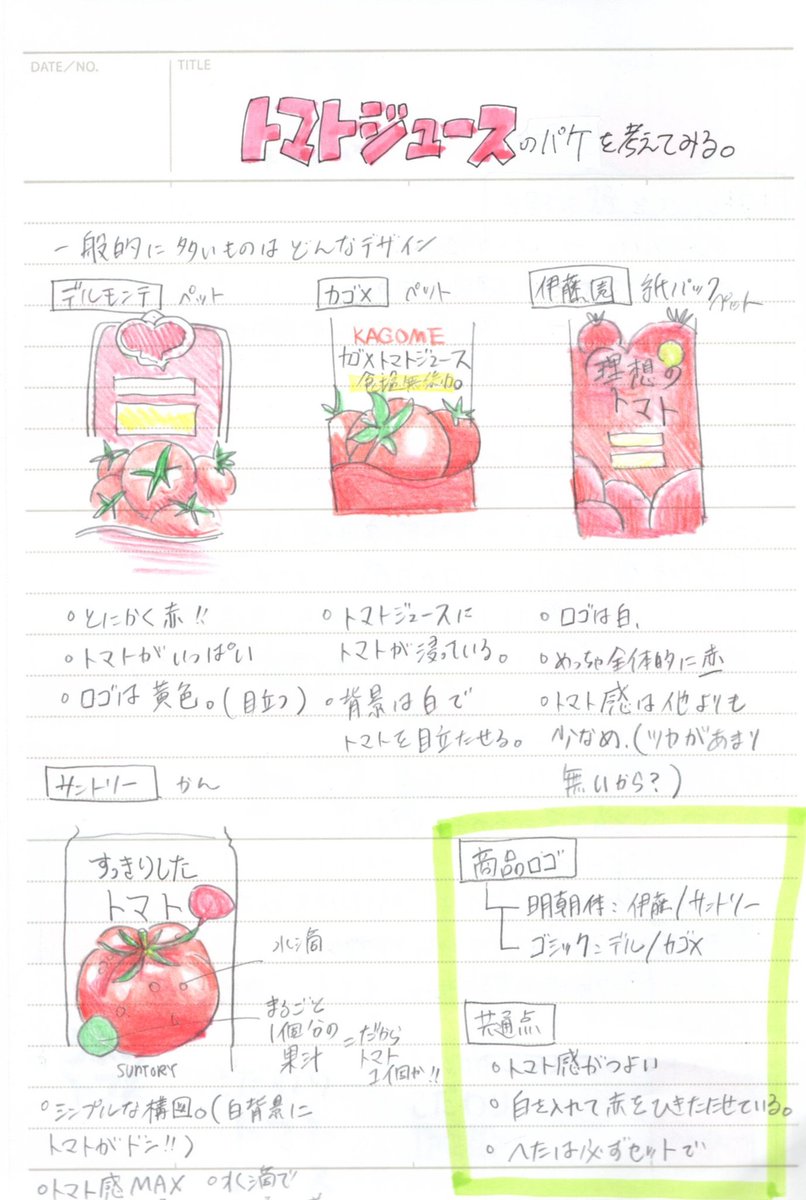 DATE/NO.
TITLE
トマトジュースのパケを考えてみる。
一般的に多いものはどんなデザイン
デルモンテ ペット
カゴメ ペット
伊藤園 紙パック
ペット
KAGOME
カゴメトマトジュース
食塩無添加。
理想の
トマト
○とにかく赤!!
○トマトがいっぱい
○ロゴは黄色。(目立つ)
○トマトジュースに
トマトが浸っている。
○背景は白で
トマトを目立たせる。
○ロゴは白、
○めっちゃ全体的に赤
○トマト感は他よりも
少なめ、(ツヤがあまり
無いから?)
サントリー かん
すっきりした
トマト
水滴
まるごと
1個分の
果汁
=だから
トマト
1個か!!
SUNTORY
○シンプルな構図。(白背景に
トマトがドン!!)
○トマト感MAX ○水滴で
商品ロゴ
明朝体:伊藤/サントリー
ゴシック:デル/カゴメ
共通点
○トマト感がつよい
○白を入れて赤をひきたたせている。
○へたは必ずセットで